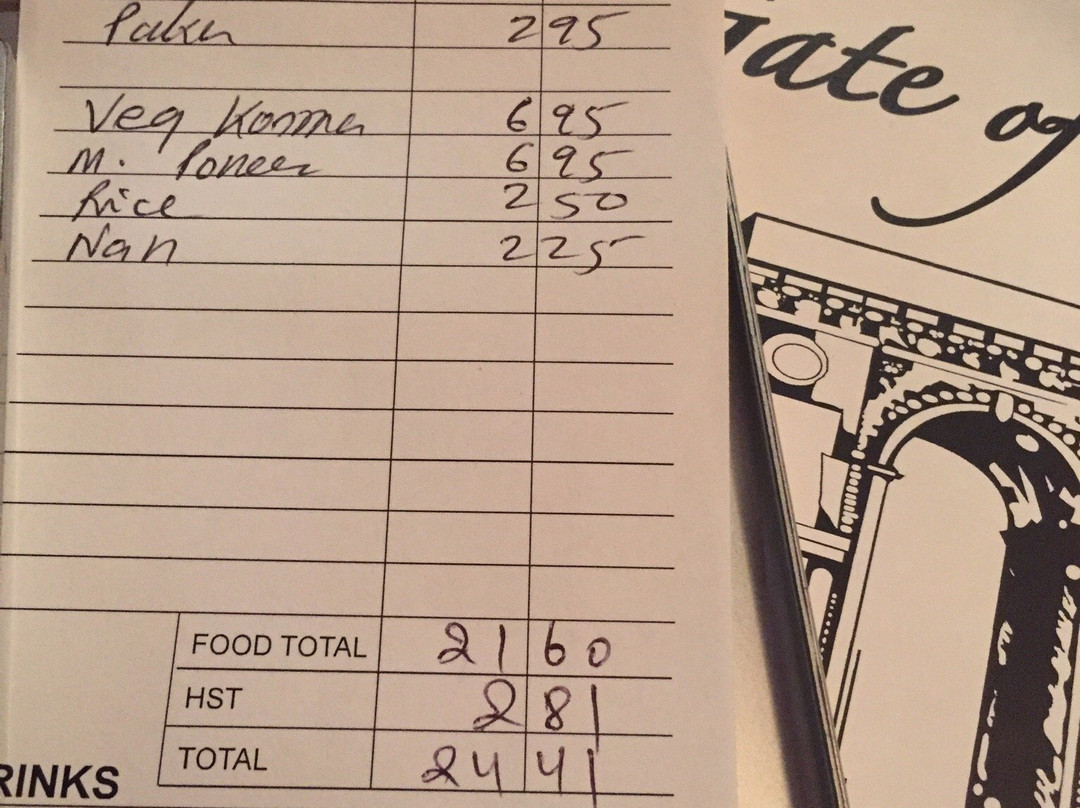 Paku 2 95
Veg Korma 6 95
M. Poneer 6 95
Rice 2 50
Nan 2 25
FOOD TOTAL 21 60
HST 2 81
TOTAL 24 41
RINKS
Gate of